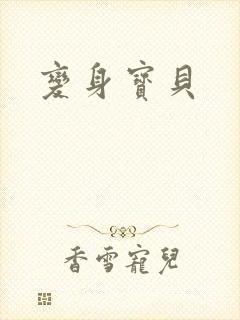 變身寶貝
香雪寵兒